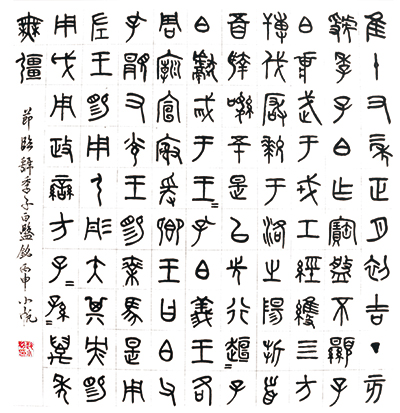 隹十又二年正月初吉丁亥
虢季子白乍寶盤不顯子
白壯武于戎工經維四方
搏伐玁狁于洛之陽折首
五百執訊五十是以先行趠=子
白獻馘于王=孔白義王各
周廟宣榭爰鄉王曰白父
孔顯又光王賜乘馬是用
左王賜用弓彤矢其央賜
用戉用政蠻方子=孫=萬年
無疆
節臨虢季子白盤銘丙申小